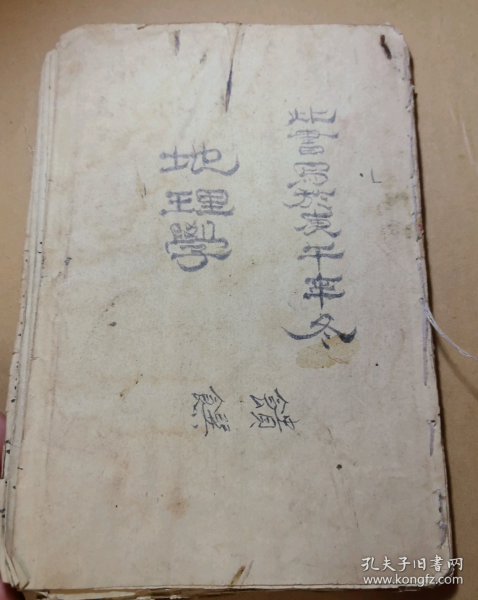 此書寫於庚午年冬
地理學
孔夫子旧书网
www.kongfz.com